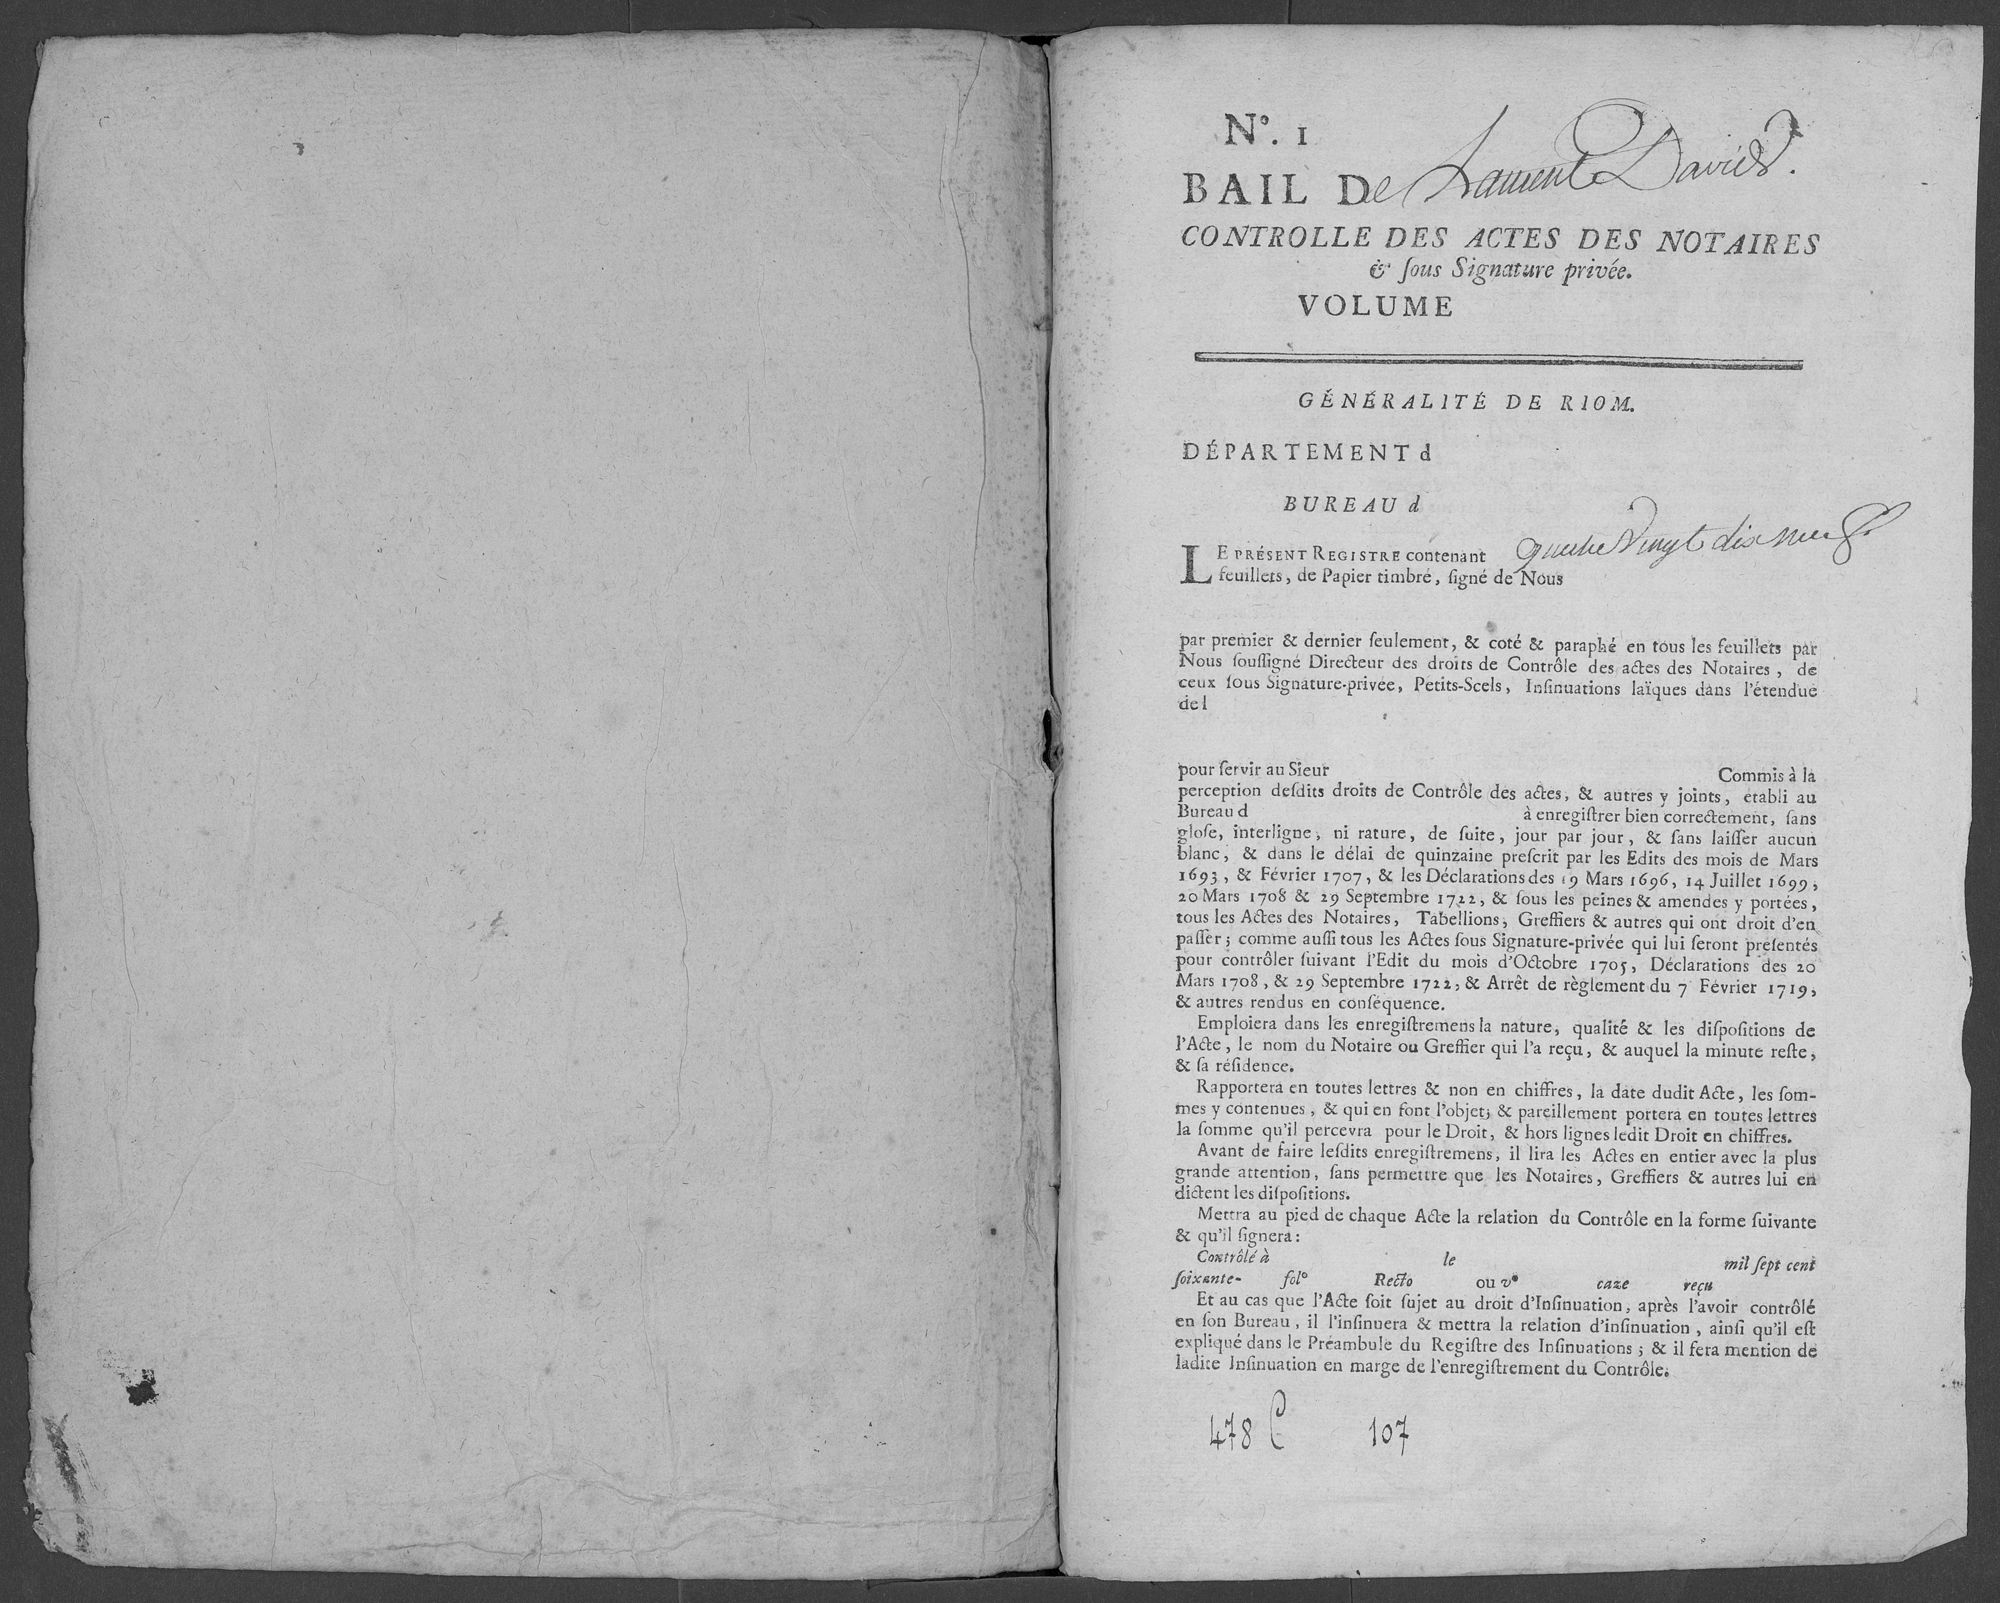 N°. 1
BAIL De Laurent David.
CONTROLLE DES ACTES DES NOTAIRES
& ſous Signature privée.
VOLUME
GÉNÉRALITÉ DE RIOM.
DÉPARTEMENT d
BUREAU d
LE PRÉSENT REGISTRE contenant quatre Vingt dix neuf
feuillets, de Papier timbré, ſigné de Nous
par premier & dernier ſeulement, & coté & paraphé en tous les feuillets par
Nous ſouſſigné Directeur des droits de Contrôle des actes des Notaires, de
ceux ſous Signature-privée, Petits-Scels, Inſinuations laïques dans l'étendue
de l
pour ſervir au Sieur Commis à la
perception deſdits droits de Contrôle des actes, & autres y joints, établi au
Bureau d à enregiſtrer bien correctement, ſans
gloſe, interligne, ni rature, de ſuite, jour par jour, & ſans laiſſer aucun
blanc, & dans le délai de quinzaine preſcrit par les Edits des mois de Mars
1693, & Février 1707, & les Déclarations des 19 Mars 1696, 14 Juillet 1699,
20 Mars 1708 & 29 Septembre 1722, & ſous les peines & amendes y portées,
tous les Actes des Notaires, Tabellions, Greffiers & autres qui ont droit d'en
paſſer; comme auſſi tous les Actes ſous Signature-privée qui lui ſeront préſentés
pour contrôler ſuivant l'Edit du mois d'Octobre 1705, Déclarations des 20
Mars 1708, & 29 Septembre 1722, & Arrêt de règlement du 7 Février 1719,
& autres rendus en conſéquence.
Emploiera dans les enregiſtremens la nature, qualité & les diſpoſitions de
l'Acte, le nom du Notaire ou Greffier qui l'a reçu, & auquel la minute reſte,
& ſa réſidence.
Rapportera en toutes lettres & non en chiffres, la date dudit Acte, les ſom-
mes y contenues, & qui en font l'objet; & pareillement portera en toutes lettres
la ſomme qu'il percevra pour le Droit, & hors lignes ledit Droit en chiffres.
Avant de faire leſdits enregiſtremens, il lira les Actes en entier avec la plus
grande attention, ſans permettre que les Notaires, Greffiers & autres lui en
dictent les diſpoſitions.
Mettra au pied de chaque Acte la relation du Contrôle en la forme ſuivante
& qu'il ſignera:
Contrôlé à le mil ſept cent
ſoixante- fol° Recto ou v° caze reçu
Et au cas que l'Acte ſoit ſujet au droit d'Inſinuation, après l'avoir contrôlé
en ſon Bureau, il l'inſinuera & mettra la relation d'inſinuation, ainſi qu'il eſt
expliqué dans le Préambule du Regiſtre des Inſinuations; & il fera mention de
ladite Inſinuation en marge de l'enregiſtrement du Contrôle.
478 C 107